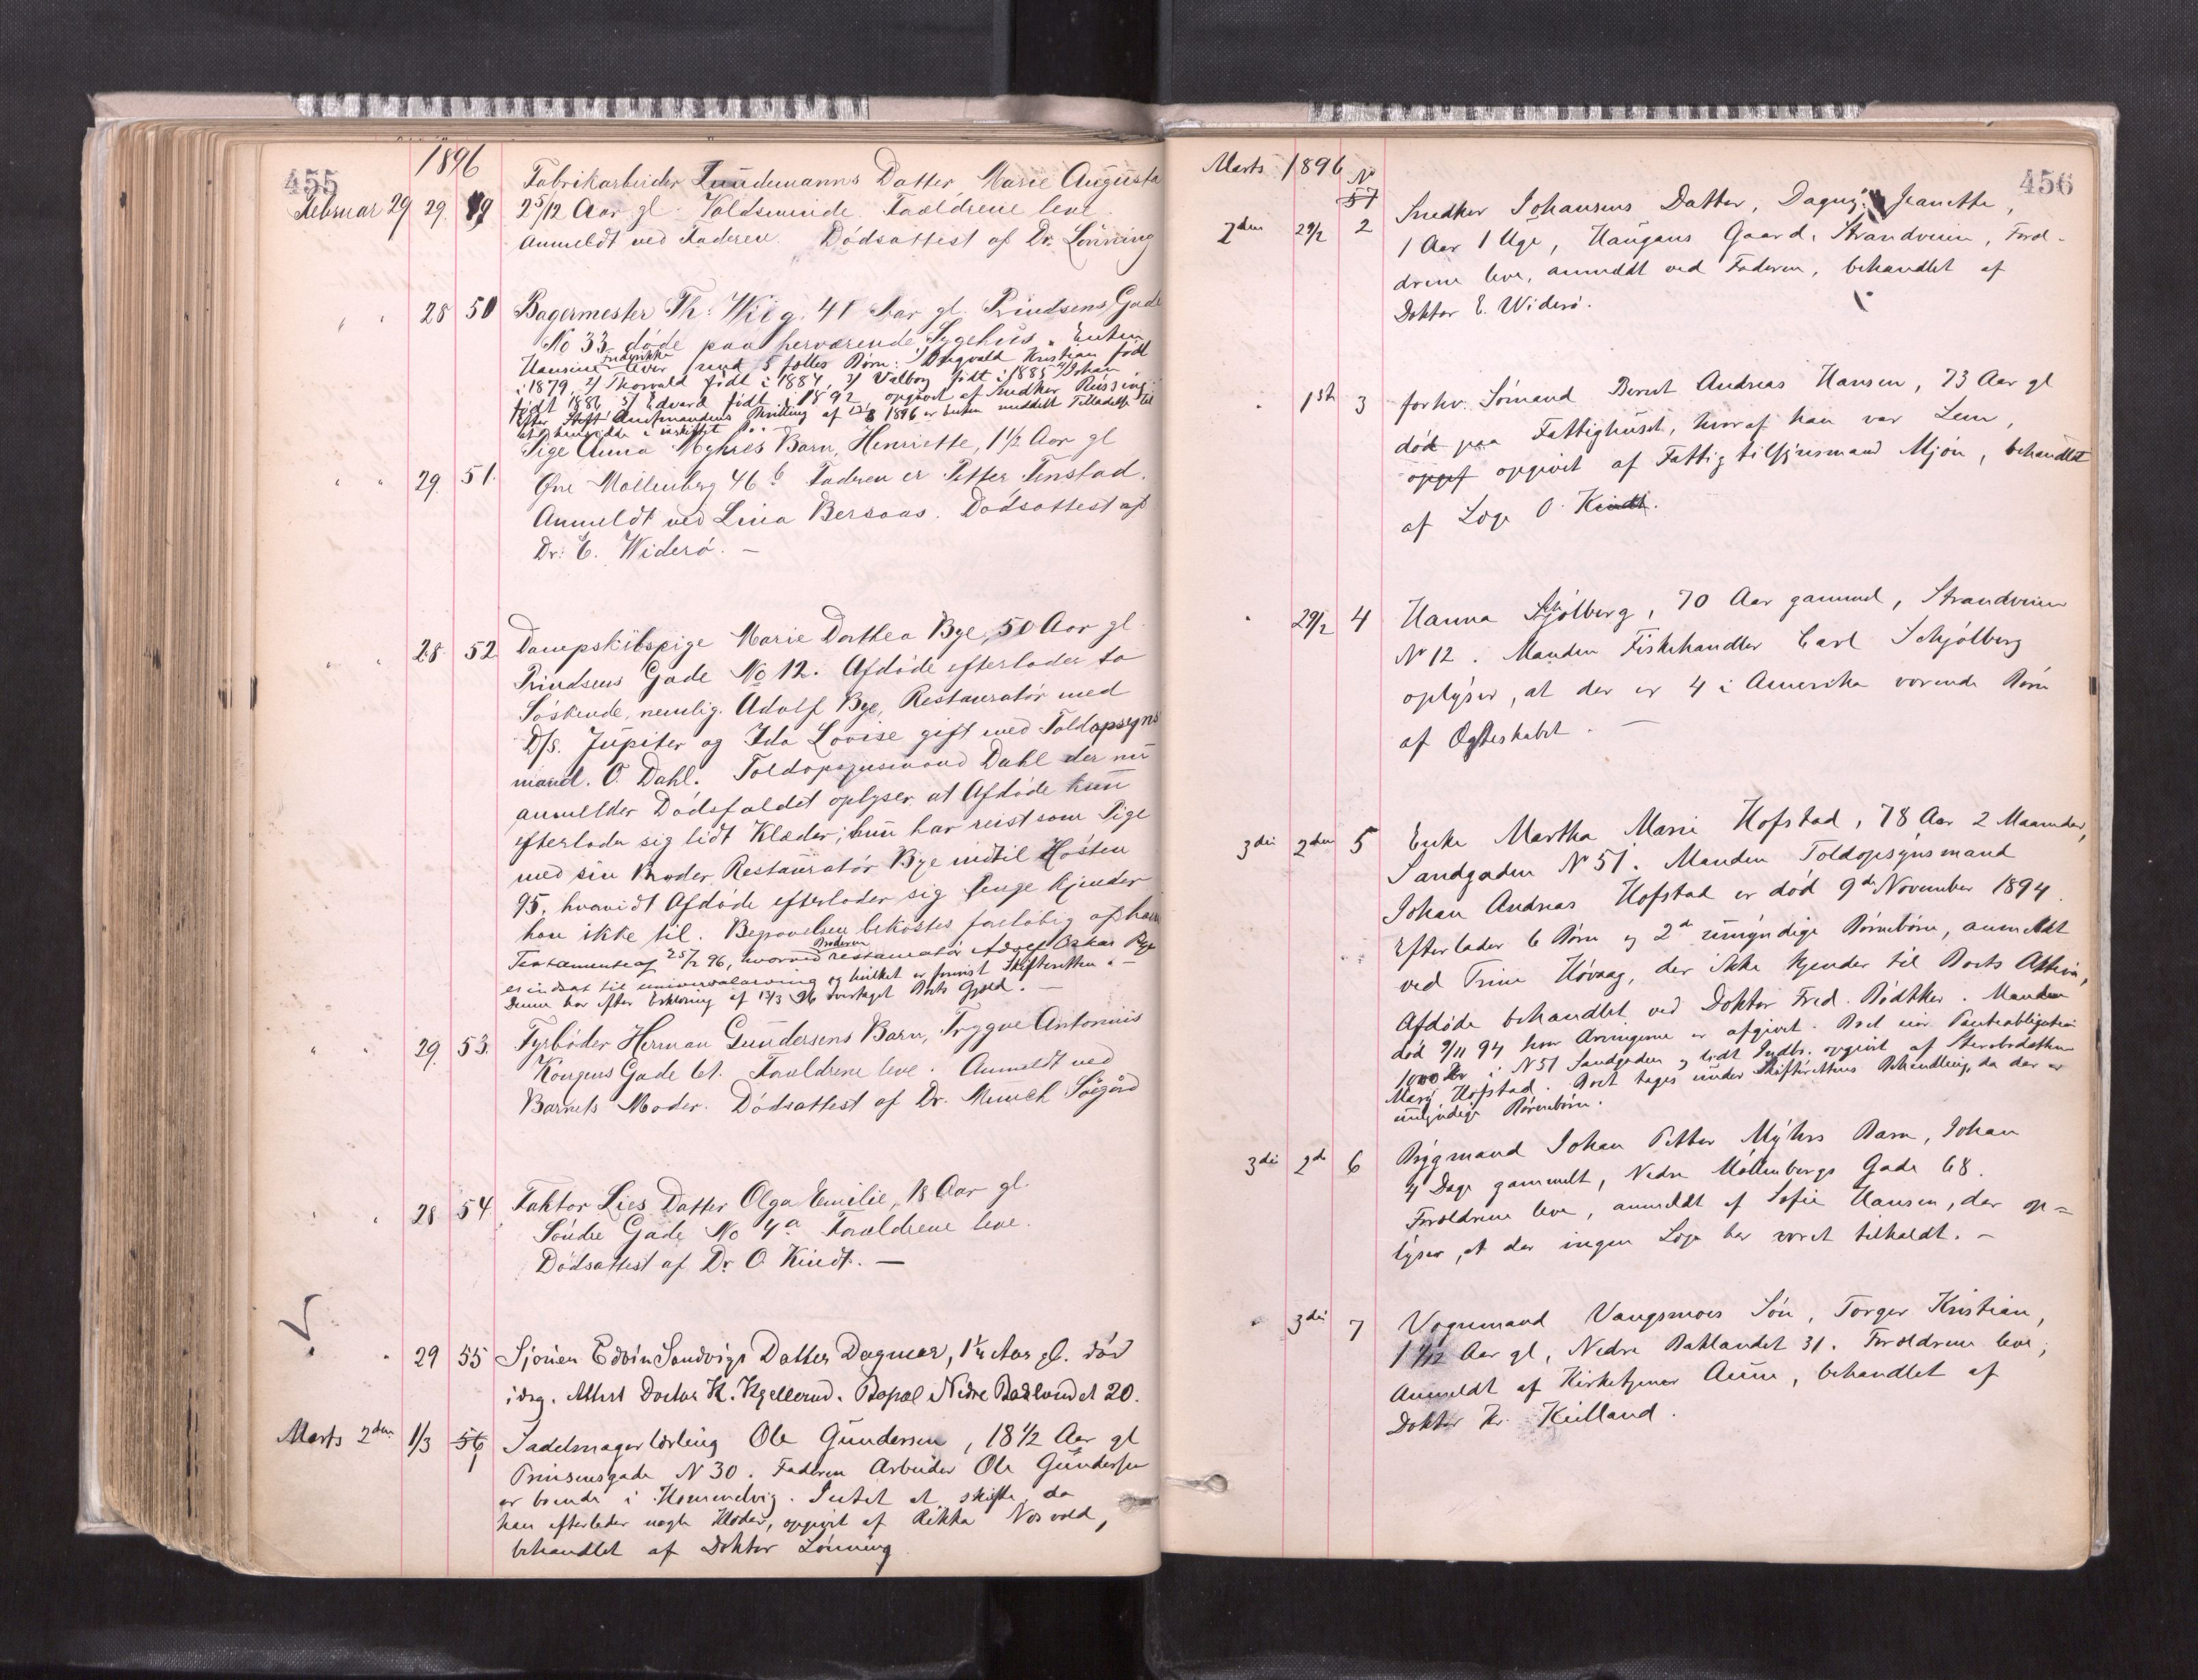 455
1896
Februar 29 29. 49 Fabrikarbeider Lundemanns Datter, Marie Augusta
2 5/12 Aar gl. Voldsminde. Forældrene leve.
Anmeldt ved Faderen. Dödsattest af Dr. Lönning
" " 28 50 Bagermester Th. Wiig, 41 Aar gl. Prindsens Gade
No 33, døde paa herværende Sygehus. Enken
Hansine Fredrikke lever med 5 fælles Børn: 1/ Dagvald Kristian født
i 1879, 2/ Thorvald født i 1884, 3/ Valborg født i 1885 4/ Johan
født 1886 5/ Edvard født i 1892, opgivet af Snedker Rüssing.
Efter Stift Amtmandens Bevilling af 1896 er Enken meddelt Tilladelse til
at hensidde i uskiftet Bo.
" " 29. 51. Pige Anna Myhres Barn, Henriette, 1 1/2 Aar gl
Øvre Møllenberg 46 b Faderen er Petter Tenstad.
Anmeldt ved Lina Bersaas. Dødsattest af
Dr. E. Widerö. —
" " 28. 52 Dampskibspige Marie Dorthea Bye, 50 Aar gl.
Prindsens Gade No 12. Afdøde efterlader to
Söskende, nemlig Adolf Bye, Restauratör med
D/S. Jupiter og Ida Lovise gift med Toldopsyns
mand. O. Dahl. Toldopsynsmand Dahl der nu
anmelder Dødsfaldet oplyser at Afdøde kun
efterlader sig lidt Klæder; hun har reist som Pige
med sin Broder Restauratör Bye indtil Høsten
95, hvorvidt Afdøde efterlader sig Penge kjender
han ikke til. Begravelsen bekostes foreløbig af ham
Testamente af 25/2 96, hvorved Broderen restauratör Adolf Oskar Bye
er indsat til universalarving og hvilket er forevist Skifteretten. —
Denne har efter Erklæring af 13/3 96 overtaget Boets Gjæld. —
" " 29. 53. Fyrbøder Herman Gundersens Barn, Trygve Antonius
Kongens Gade 61. Forældrene leve. Anmeldt ved
Barnets Moder. Dödsattest af Dr. Munch Søegård
" " 28 54 Faktor Lies Datter Olga Emilie, 18 Aar gl.
Søndre Gade No 4a Forældrene leve.
Dödsattest af Dr. O. Kindt. —
" " 29 55 Sjouer Edvin Sandvigs Datter Dagmar, 1 1/2 Aar gl. död
idag. Attest Doctor K. Kjellerud. Bopæl Nedre Baklandet 20.
Marts 2den 1/3 56 1 Sadelmagerlærling Ole Gundersen, 18 1/2 Aar gl
Prinsensgade N 30. Faderen Arbeider Ole Gundersen
er boende i Hommelvig. Intet at skifte, da
han efterlader nogle Klæder, opgivet af Rikka Nosvold,
behandlet af Doktor Lönning
456
Marts 1896 No
57
2den 29/2 2 Snedker Johansens Datter, Dagny Jeanette,
1 Aar 1 Uge, Haugans Gaard, Strandveien, Foræl-
drene leve, anmeldt ved Faderen, behandlet af
Doktor E. Widerö.
" 1ste 3 forhv. Sömand Bernt Andreas Hansen, 73 Aar gl
död paa Fattighuset, hvoraf han var Lem,
opgif opgivet af Fattigtilsynsmand Mjön, behandlet
af Læge O. Kindt.
" 29/2 4 Hanna Schjölberg, 70 Aar gammel, Strandveien
No 12. Manden Fiskehandler Carl Schjölberg
oplyser, at der er 4 i Amerika værende Börn
af Ægteskabet. —
3die 2den 5 Enke Martha Marie Hofstad, 78 Aar 2 Maaneder,
Sandgaden No 51. Manden Toldopsynsmand
Johan Andreas Hofstad er död 9de November 1894.
Efterlader 6 Börn og 2de umyndige Börnebörn, anmeldt
ved Trine Hövaag, der ikke kjender til Boets Aktiva,
Afdöde behandlet ved Doktor Fred. Bödtker. Manden
död 9/11 94 hvor Arvingerne er opgivet. Boet eier Panteobligation
1000 Kr i No 51 Sandgaden og lidt Indbo. opgivet af Stervbodatter
Marg Hofstad. Boet tages under Skifterettens Behandling, da der er
umyndige Börnebörn.
3die 2de 6 Bygmand Johan Petter Myhrs Barn, Johan
4 Dage gammelt, Nedre Möllenbergs Gade 68.
Forældrene leve, anmeldt af Sofie Hansen, der op-
lyser, at der ingen Læge har været tilkaldt. —
" 3die 7 Vognmand Vangsmoes Sön, Torger Kristian,
1 9/12 Aar gl, Nedre Baklandet 31. Forældrene leve;
Anmeldt af Kirketjener Aune, behandlet af
Doktor Kr. Kielland.